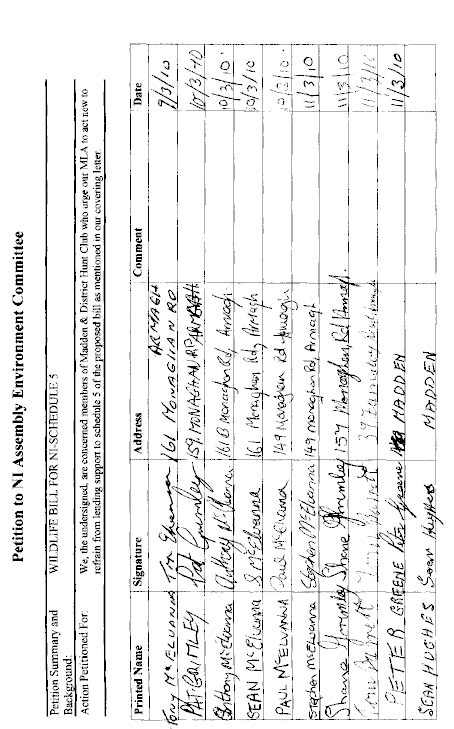 Petition to NI Assembly Environment Committee
Petition Summary and Background: WILDLIFE BILL FOR NI-SCHEDULE 5
Action Petitioned For: We, the undersigned, are concerned members of Madden & District Hunt Club who urge our MLA to act now to
refrain from lending support to schedule 5 of the proposed bill as mentioned in our covering letter.
Printed Name Signature Address Comment Date
Tony McELVANNA 161 MONAGHAN RD ARMAGH 9/3/10
PAT GRIMLEY Pat Grimley 159 MONAGHAN RD ARMAGH 10/3/10
Anthony McElvanna Anthony McElvanna 161 B Monaghan Rd, Armagh 10/3/10.
SEAN McElvanna S McElvanna 161 Monaghan Rd, Armagh 10/3/10
PAUL McELVANNA Paul McElvanna 149 Monaghan Rd Armagh 10/3/10.
Stephen McElvanna Stephen McElvanna 149 Monaghan Rd, Armagh 11/3/10
Shane Grimley Shane Grimley 159 Monaghan Rd Armagh. 11/3/10
11/3/10
PETER GREENE Pete Greene MADDEN 11/3/10
SEAN HUGHES Sean Hughes MADDEN